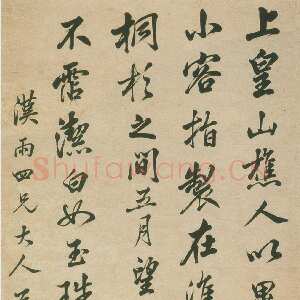 上皇山樵人以異
小容指製在淮
桐杉之間五月望
不霑潔白如玉珠
雨四兄大人